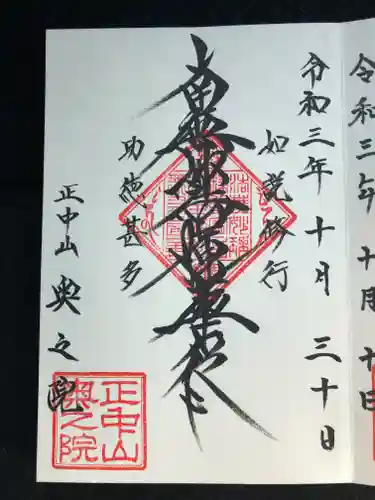 令和三年十月十日
令和三年十月三十日
如説修行
南無妙法蓮華経
助徳甚多
正中山 奥之院
正中山
奥之院